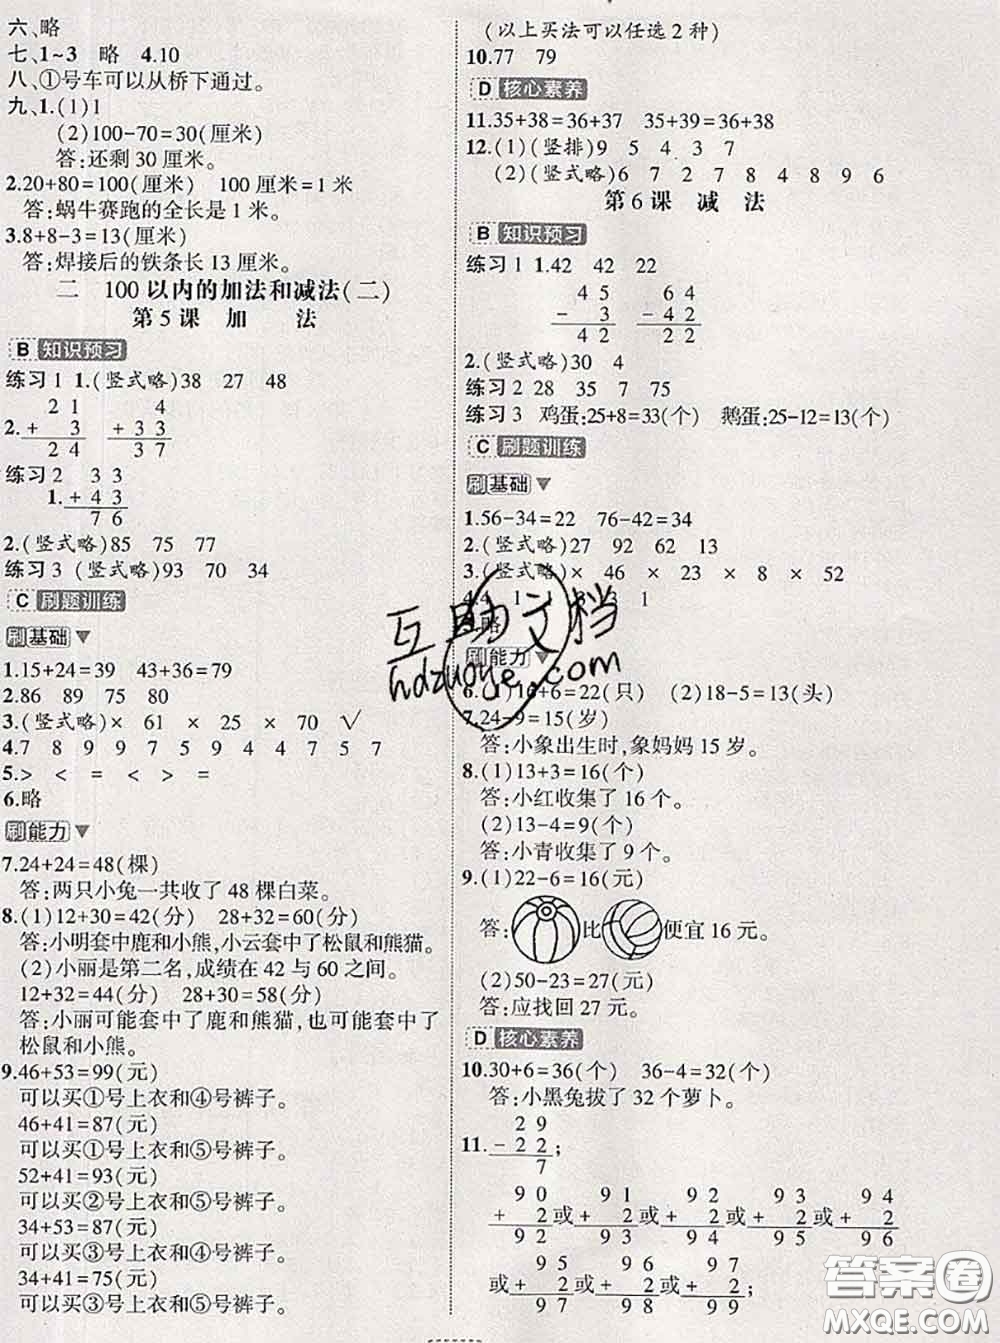 六、略
七、1~3 略 4.10
八、①号车可以从桥下通过。
九、1.(1)1
(2)100-70=30(厘米)
答:还剩 30 厘米。
2.20+80=100(厘米) 100 厘米=1 米
答:蜗牛赛跑的全长是 1 米。
3.8+8-3=13(厘米)
答:焊接后的铁条长 13 厘米。
二 100 以内的加法和减法(二)
第 5 课 加 法
B 知识预习
练习 1 1.(竖式略)38 27 48
2 1 4
2.+ 3 +3 3
2 4 3 7
练习 2 3 3
1.+4 3
7 6
2.(竖式略)85 75 77
练习 3 (竖式略)93 70 34
C 刷题训练
刷基础
1.15+24=39 43+36=79
2.86 89 75 80
3.(竖式略)× 61 × 25 × 70 √
4.7 8 9 9 7 5 9 4 4 7 5 7
5.> < = > < =
6.略
刷能力
7.24+24=48(棵)
答:两只小兔一共收了 48 棵白菜。
8.(1)12+30=42(分) 28+32=60(分)
答:小明套中鹿和小熊,小云套中了松鼠和熊猫。
(2)小丽是第二名,成绩在 42 与 60 之间。
12+32=44(分) 28+30=58(分)
答:小丽可能套中了鹿和熊猫,也可能套中了
松鼠和小熊。
9.46+53=99(元)
可以买①号上衣和④号裤子。
46+41=87(元)
可以买①号上衣和⑤号裤子。
52+41=93(元)
可以买②号上衣和⑤号裤子。
34+53=87(元)
可以买③号上衣和④号裤子。
34+41=75(元)
可以买③号上衣和⑤号裤子。
(以上买法可以任选 2 种)
10.77 79
D 核心素养
11.35+38=36+37 35+39=36+38
12.(1)(竖排)9 5 4 3 7
(2)(竖式略)6 7 2 7 8 4 8 9 6
第 6 课 减 法
B 知识预习
练习 1 1.42 42 22
4 5 6 4
- 3 -4 2
4 2 2 2
2.(竖式略)30 4
练习 2 28 35 7 75
练习 3 鸡蛋:25+8=33(个) 鹅蛋:25-12=13(个)
C 刷题训练
刷基础
1.56-34=22 76-42=34
2.(竖式略)27 92 62 13
3.(竖式略)× 46 × 23 × 8 × 52
4.4 1 3 1
略
刷能力
6.(1)16+6=22(只) (2)18-5=13(头)
7.24-9=15(岁)
答:小象出生时,象妈妈 15 岁。
8.(1)13+3=16(个)
答:小红收集了 16 个。
(2)13-4=9(个)
答:小青收集了 9 个。
9.(1)22-6=16(元)
答: 比 便宜 16 元。
(2)50-23=27(元)
答:应找回 27 元。
D 核心素养
10.30+6=36(个) 36-4=32(个)
答:小黑兔拔了 32 个萝卜。
2 9
11.-2 2;
7
9 0 9 1 9 2 9 3 9 4
+ 2或+ 2或+ 2或+ 2或+ 2
9 2 9 3 9 4 9 5 9 6
9 5 9 6 9 7
或+ 2或+ 2或+ 2;
9 7 9 8 9 9
互助文档
hdzuoye.com
答案圈
MXQE.COM